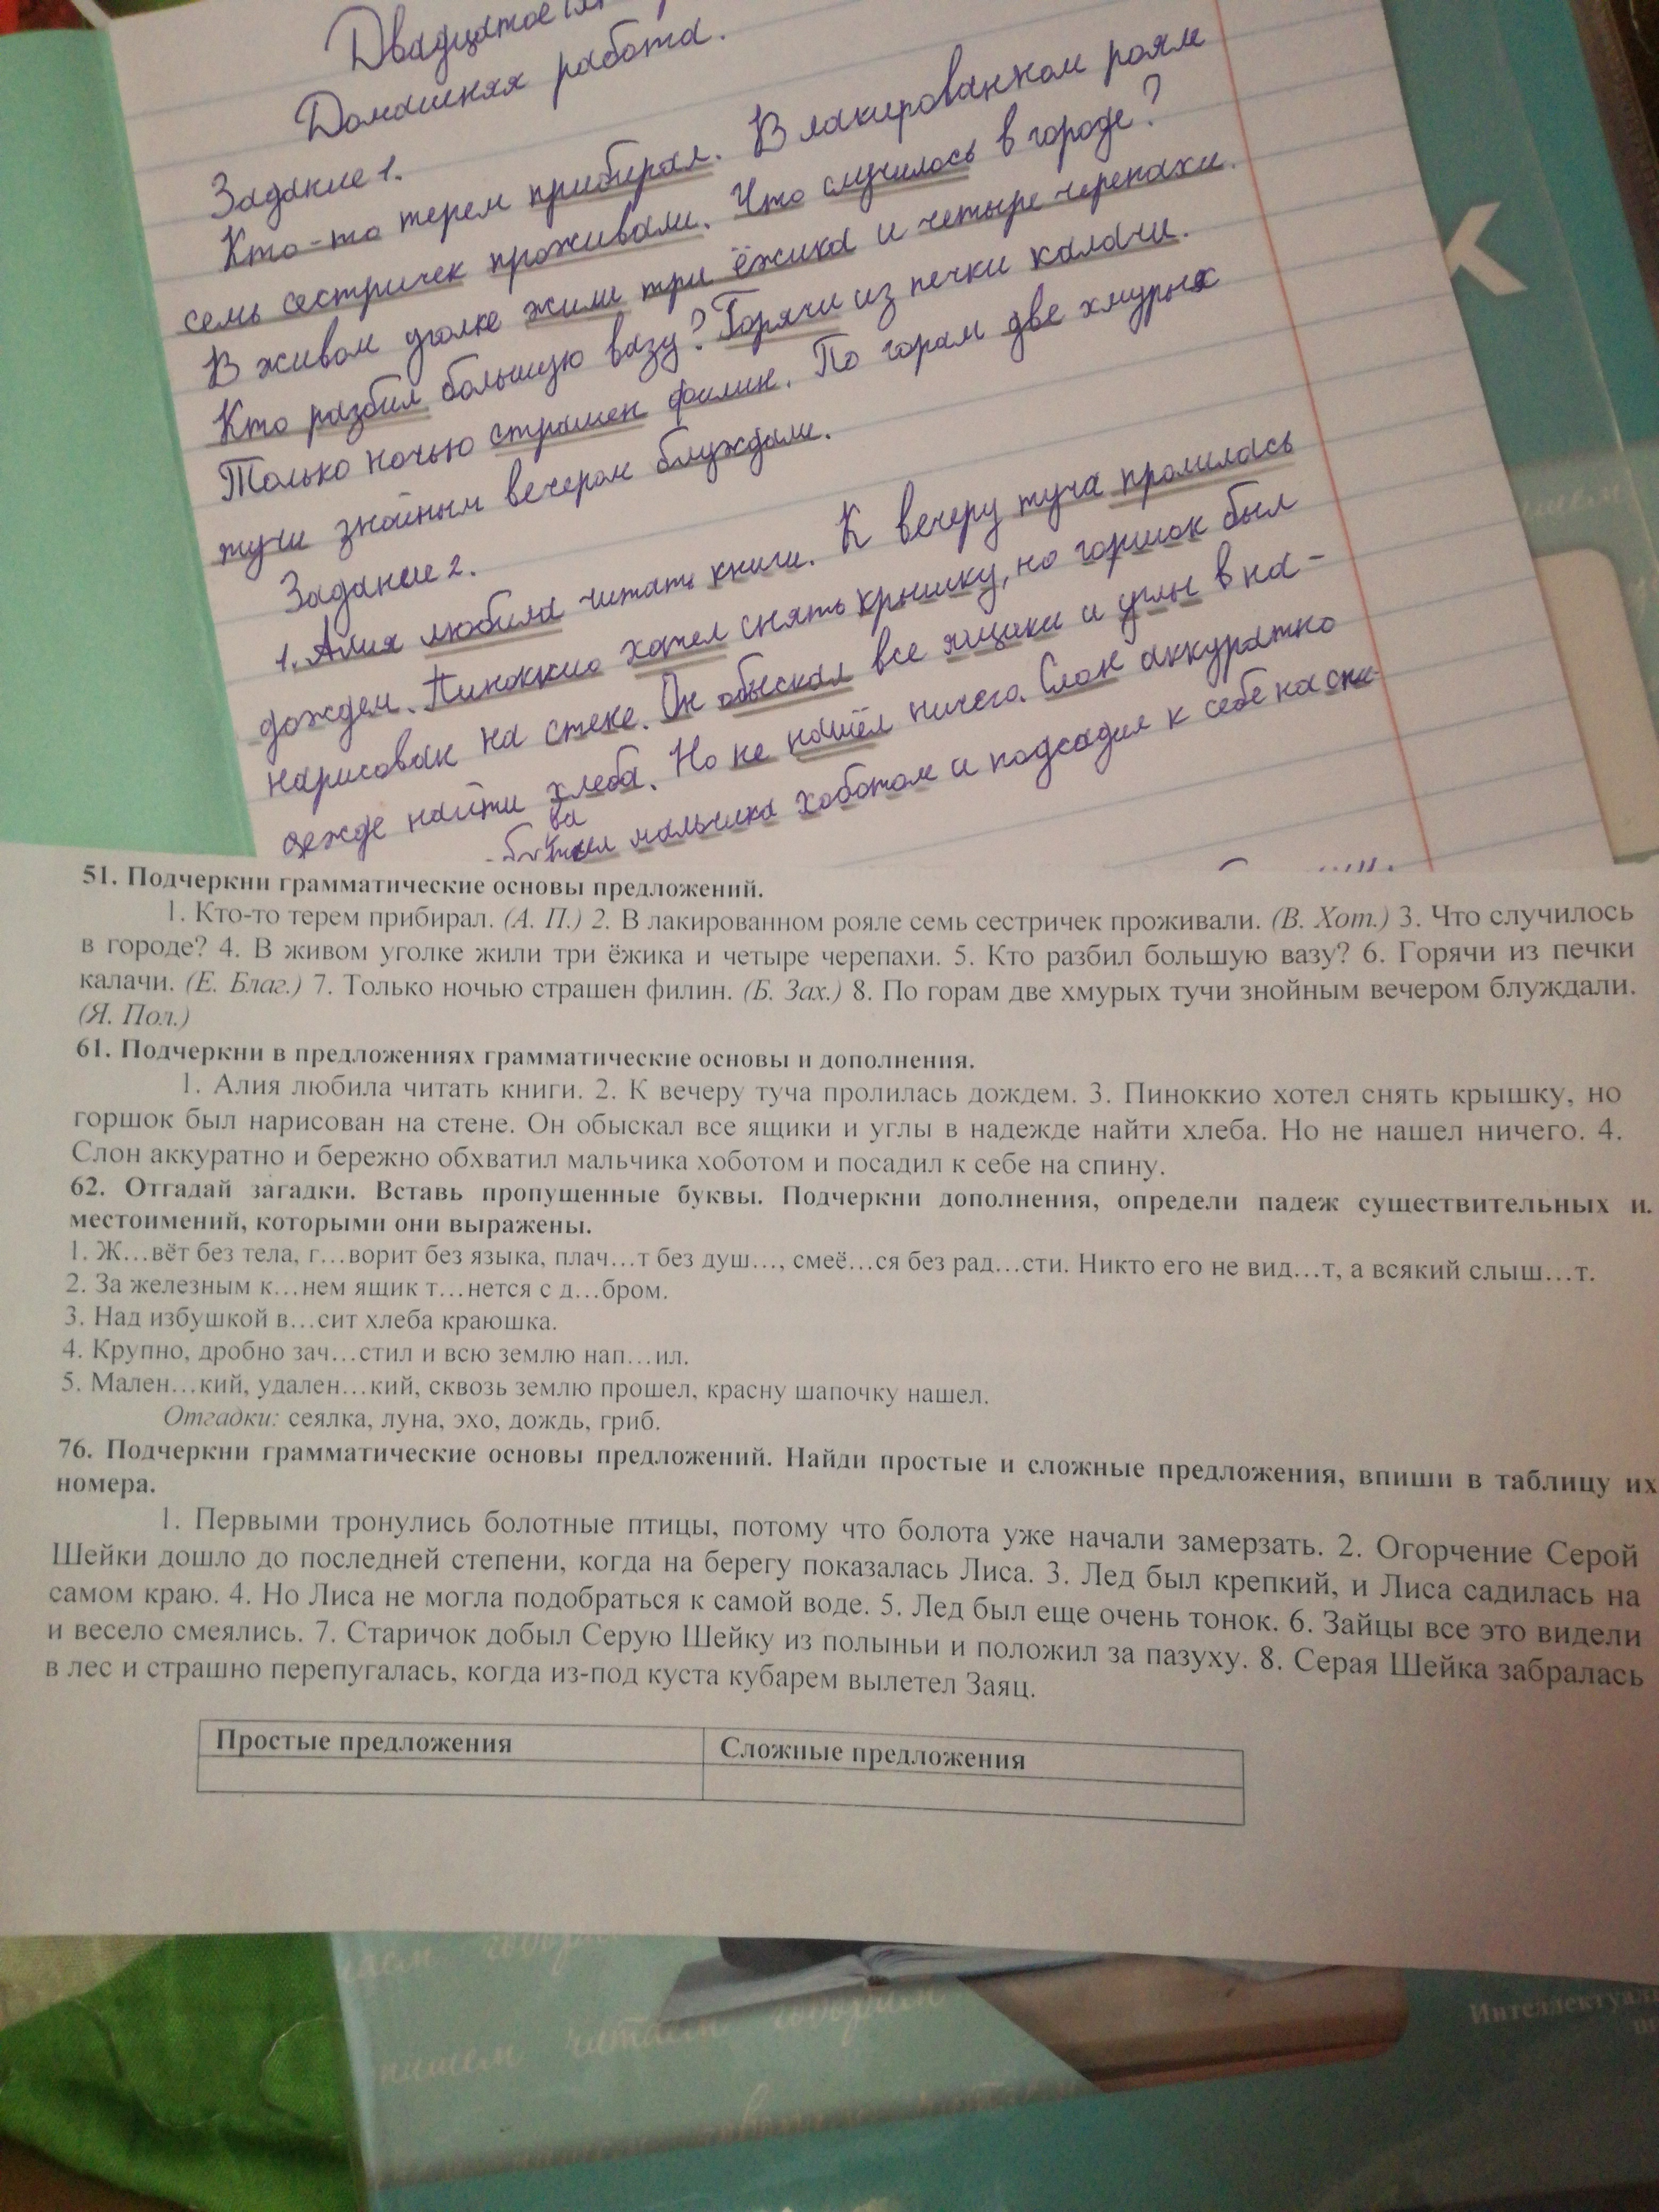 Двадцатое
Домашняя работа.
Задание 1.
Кто-то терем прибирал. В лакированном рояле
семь сестричек проживали. Что случилось в городе?
В живом уголке жили три ёжика и четыре черепахи.
Кто разбил большую вазу? Горячи из печки калачи.
Только ночью страшен филин. По горам две хмурых
тучи знойным вечером блуждали.
Задание 2.
1. Алия любила читать книги. К вечеру туча пролилась
дождем. Пиноккио хотел снять крышку, но горшок был
нарисован на стене. Он обыскал все ящики и углы в на-
дежде найти хлеба. Но не нашёл ничего. Слон аккуратно
мальчика хоботом и подсадил к себе на спи-
51. Подчеркни грамматические основы предложений.
1. Кто-то терем прибирал. (А. П.) 2. В лакированном рояле семь сестричек проживали. (В. Хот.) 3. Что случилось
в городе? 4. В живом уголке жили три ёжика и четыре черепахи. 5. Кто разбил большую вазу? 6. Горячи из печки
калачи. (Е. Благ.) 7. Только ночью страшен филин. (Б. Зах.) 8. По горам две хмурых тучи знойным вечером блуждали.
(Я. Пол.)
61. Подчеркни в предложениях грамматические основы и дополнения.
1. Алия любила читать книги. 2. К вечеру туча пролилась дождем. 3. Пиноккио хотел снять крышку, но
горшок был нарисован на стене. Он обыскал все ящики и углы в надежде найти хлеба. Но не нашел ничего. 4.
Слон аккуратно и бережно обхватил мальчика хоботом и посадил к себе на спину.
62. Отгадай загадки. Вставь пропущенные буквы. Подчеркни дополнения, определи падеж существительных и.
местоимений, которыми они выражены.
1. Ж…вёт без тела, г…ворит без языка, плач…т без душ…, смеё…ся без рад…сти. Никто его не вид…т, а всякий слыш…т.
2. За железным к…нем ящик т…нется с д…бром.
3. Над избушкой в…сит хлеба краюшка.
4. Крупно, дробно зач…стил и всю землю нап…ил.
5. Мален…кий, удален…кий, сквозь землю прошел, красну шапочку нашел.
Отгадки: сеялка, луна, эхо, дождь, гриб.
76. Подчеркни грамматические основы предложений. Найди простые и сложные предложения, впиши в таблицу их
номера.
1. Первыми тронулись болотные птицы, потому что болота уже начали замерзать. 2. Огорчение Серой
Шейки дошло до последней степени, когда на берегу показалась Лиса. 3. Лед был крепкий, и Лиса садилась на
самом краю. 4. Но Лиса не могла подобраться к самой воде. 5. Лед был еще очень тонок. 6. Зайцы все это видели
и весело смеялись. 7. Старичок добыл Серую Шейку из полыньи и положил за пазуху. 8. Серая Шейка забралась
в лес и страшно перепугалась, когда из-под куста кубарем вылетел Заяц.
Простые предложения
Сложные предложения
говорим
пишем читаем говорим